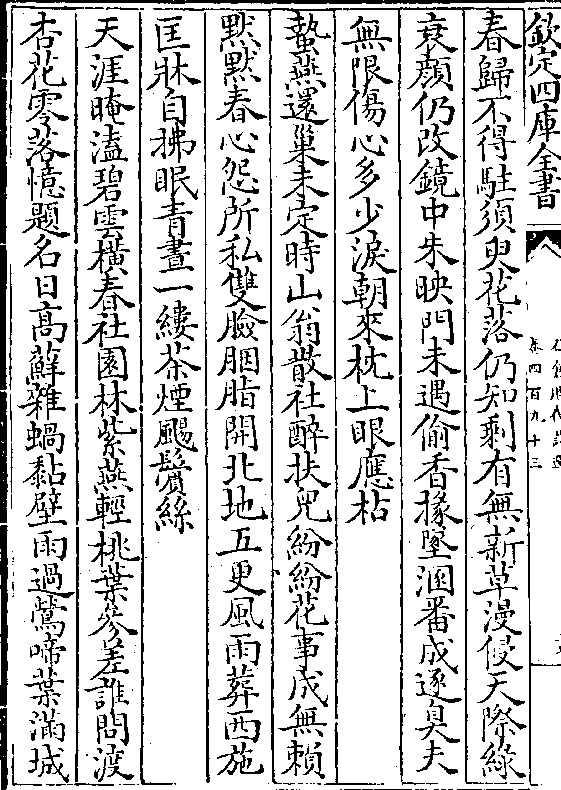 欽定四庫全書
卷四百九十三
春歸不得駐須臾花落仍知剩有無新草漫侵天際綠
衰顔仍改鏡中朱映門未遇偷香掾墜溷番成逐臭夫
無限傷心多少淚朝來枕上眼應枯
蟄燕還巢未定時山翁散社醉扶兒紛紛花事成無賴
黙黙春心怨所私雙臉胭脂開北地五更風雨葬西施
匡牀自拂眠青晝一縷茶煙颺鬢絲
天涯晻溘碧雲橫春社園林紫燕輕桃葉參差誰問渡
杏花零落憶題名日髙蘚雜蝸黏壁雨過鶯啼葉滿城